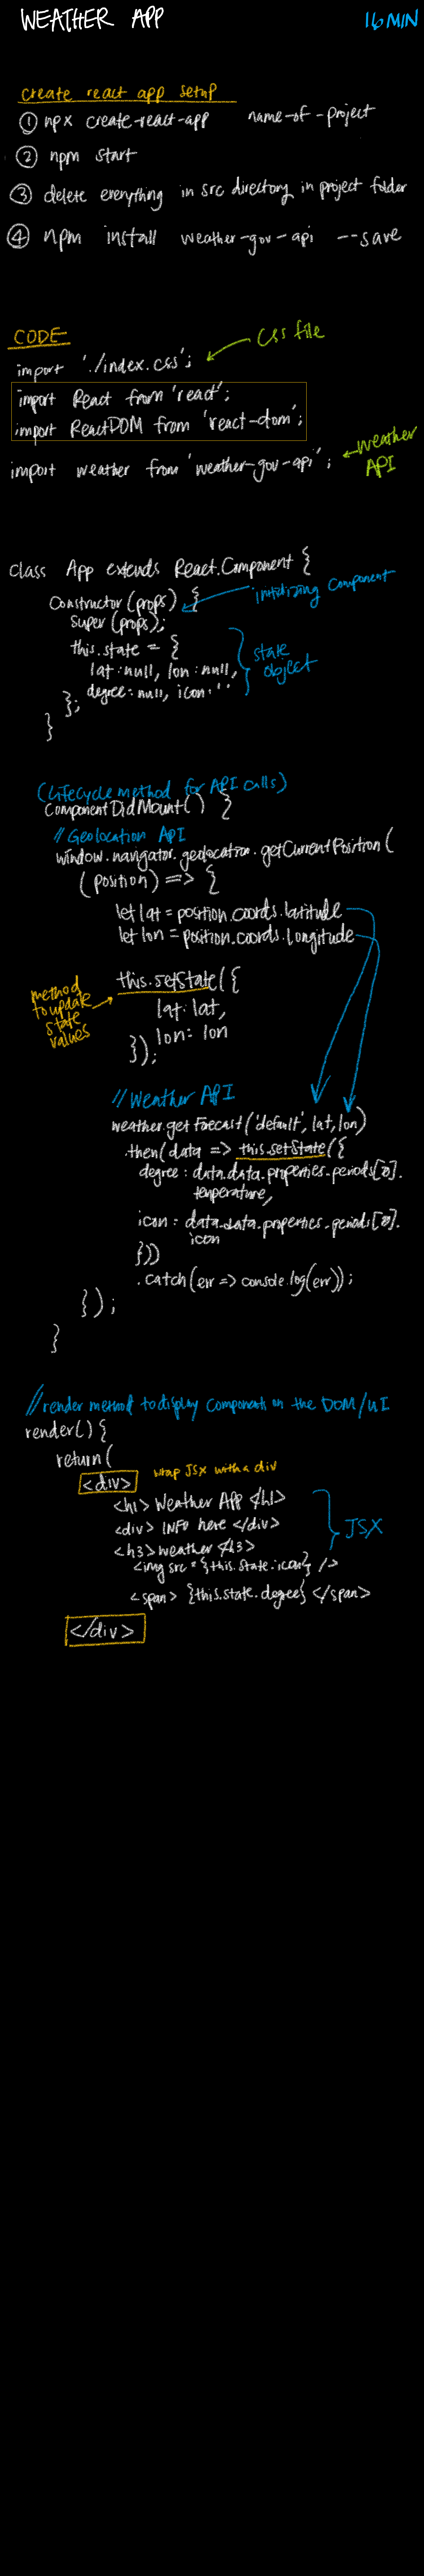 WEATHER APP 16 MIN
create react app setup
① npx create-react-app name-of-project
② npm start
③ delete everything in src directory in project folder
④ npm install weather-gov-api --save
CODE
css file
import './index.css';
import React from 'react';
import ReactDOM from 'react-dom';
weather
API
import weather from 'weather-gov-api';
class App extends React.Component {
initializing component
Constructor(props) {
super(props);
this.state = {
lat:null, lon:null,
degree:null, icon:''
};
}
state
object
(lifecycle method for API calls)
ComponentDidMount() {
// Geolocation API
window.navigator.geolocation.getCurrentPosition(
(position) => {
let lat = position.coords.latitude
let lon = position.coords.longitude
method
to update
state
values
this.setState({
lat: lat,
lon: lon
});
// Weather API
weather.getForecast('default', lat, lon)
.then(data => this.setState({
degree: data.data.properties.periods[0].
temperature,
icon: data.data.properties.periods[0].
icon
}))
.catch(err => console.log(err));
});
}
// render method to display components on the DOM/UI
render() {
return(
<div> wrap JSX with a div
<h1> Weather App </h1>
<div> INFO here </div>
<h3> weather </h3>
<img src = {this.state.icon} />
<span> {this.state.degree} </span>
JSX
</div>